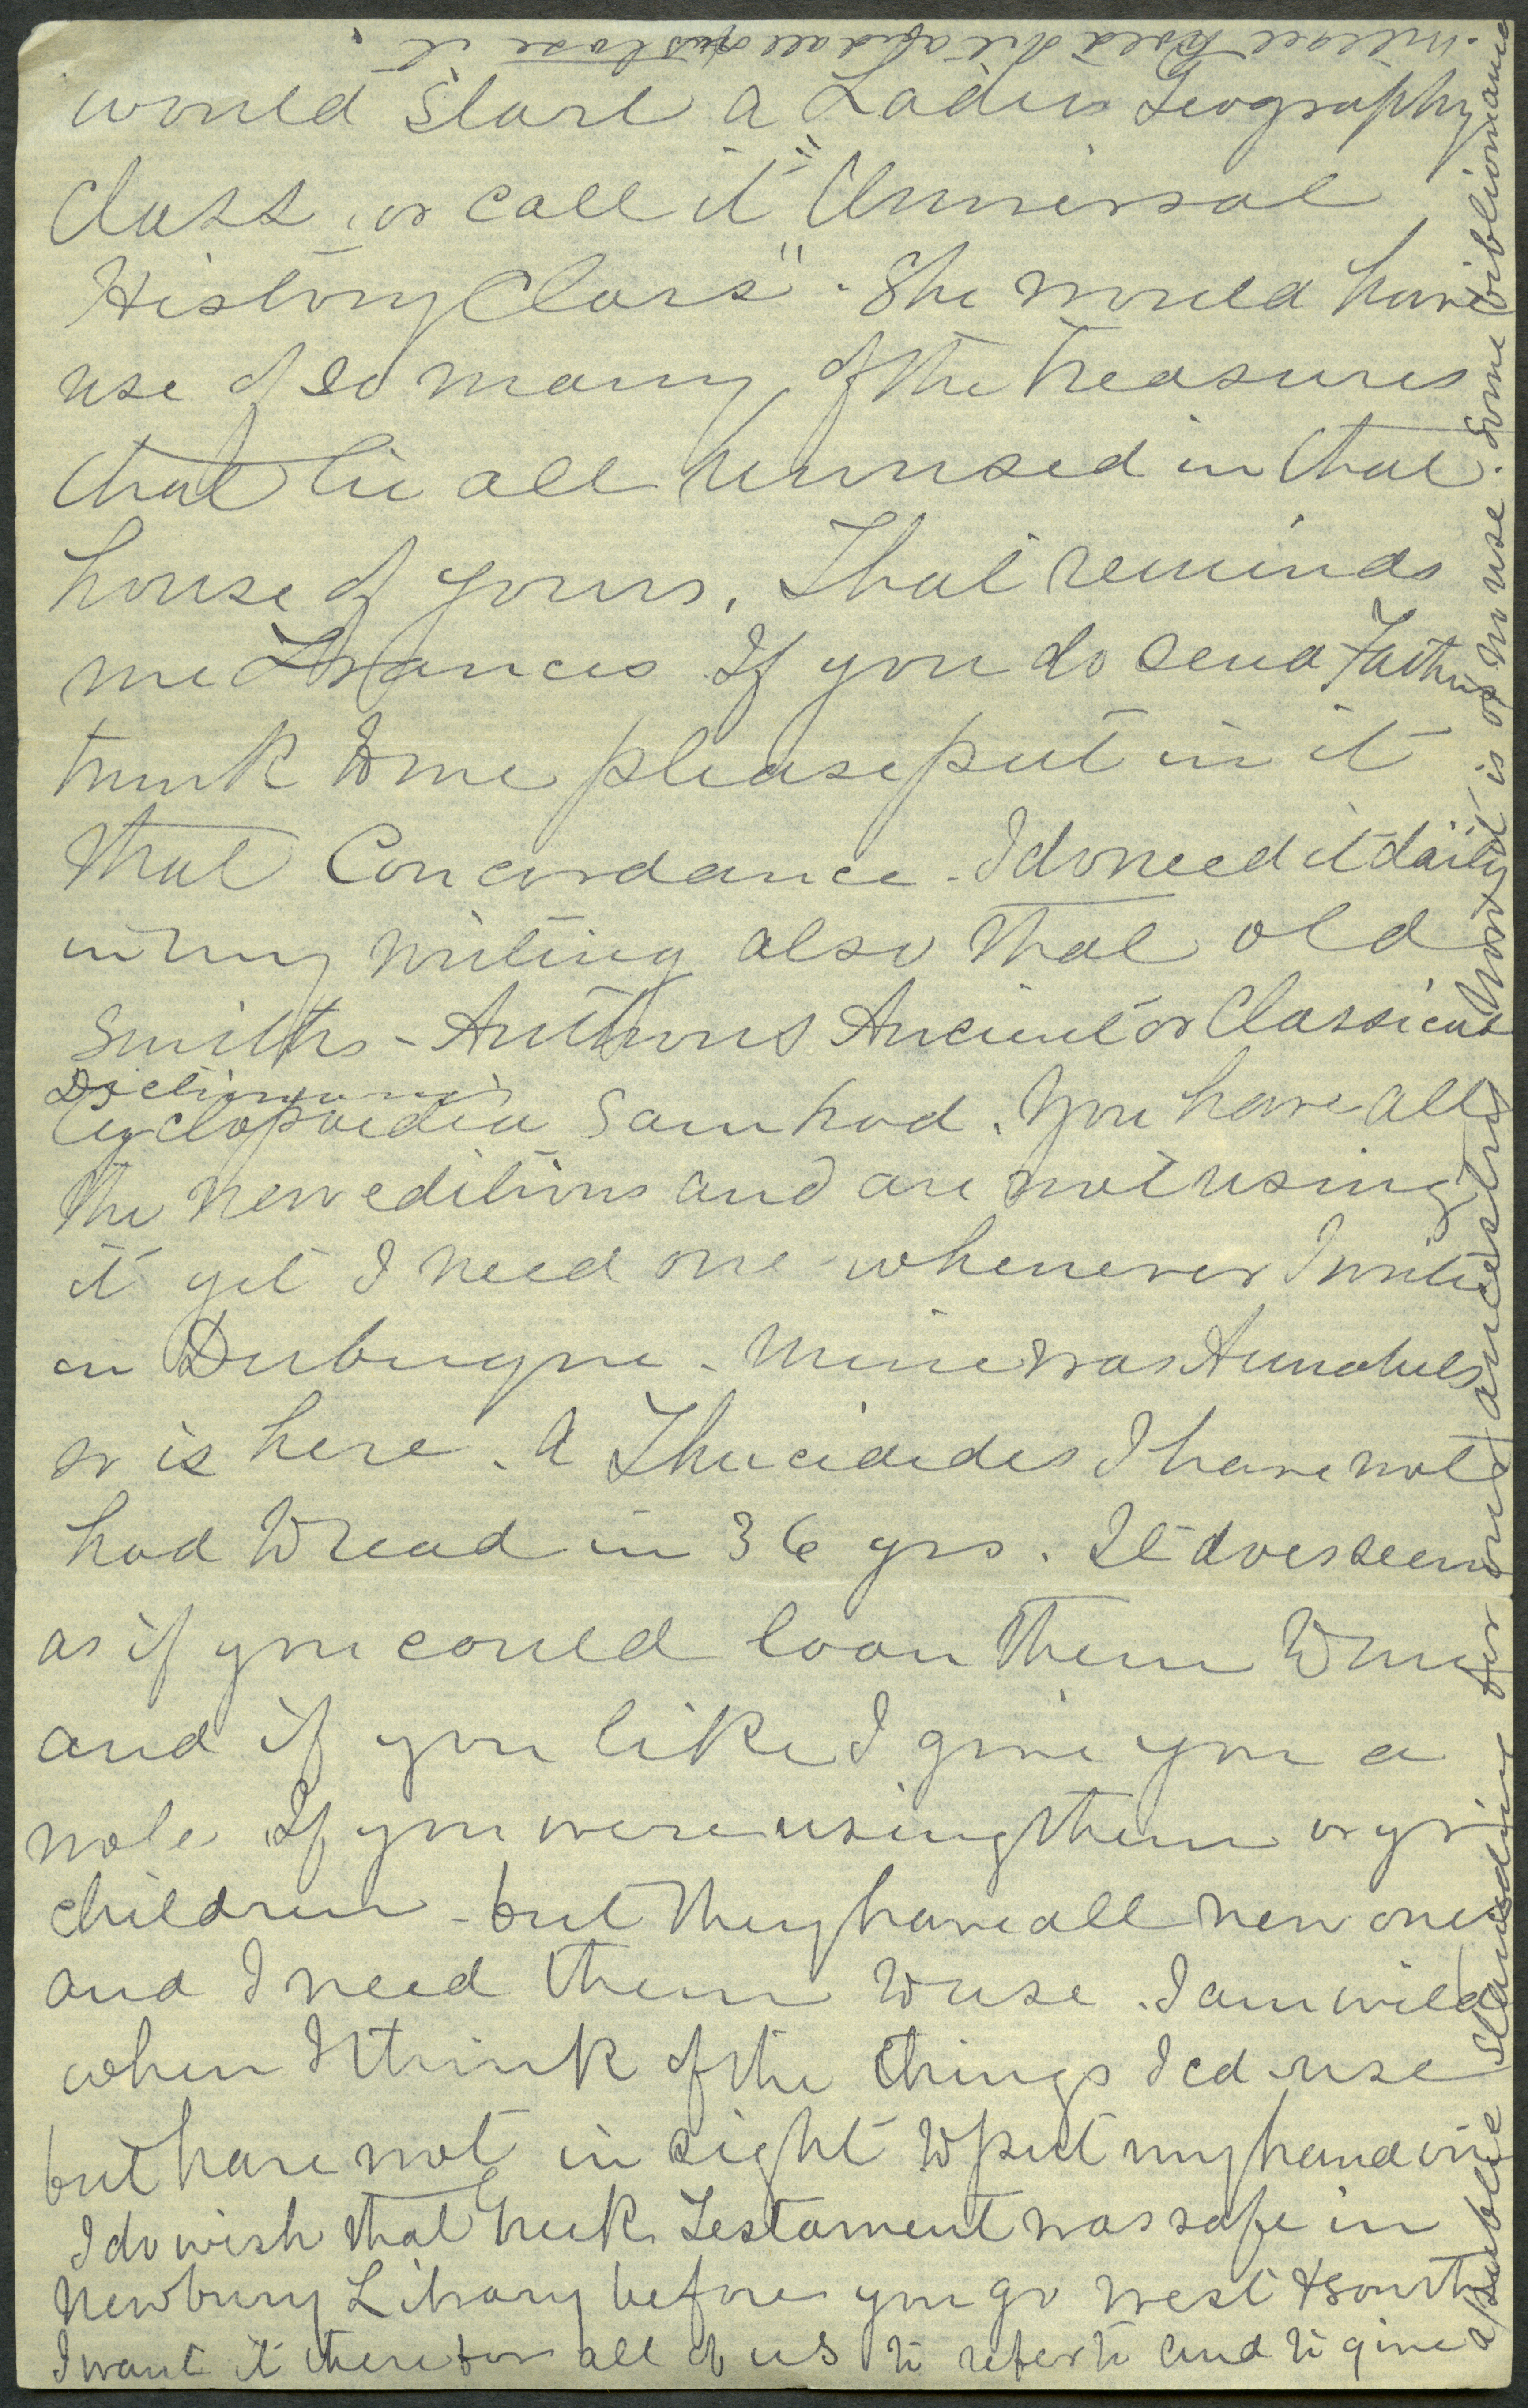 would start a Ladies Geography
Class, or call it "Universal
History Class". She would have
use of so many of the treasures
that lie all unused in that
house of yours. That reminds
me Frances If you do send Fathers
trunk to me please put in it
that Concordance. I do need it daily
in my writing also that old
Smiths - Authors Ancient or Classical
Dictionary
Cyclopaedia Sam had. You have all
the new editions and are not using
it yet I need one whenever I write
in Dubuque. Mine was Annabels
so is here. A Thucidides I have not
had to read in 36 yrs. It does seem
as if you could loan them to me
and if you like I give you a
note. If you were using them or yr
children - but they have all new ones
and I need them to use. I am wild
when I think of the things I cd use
but have not in sight to put my hand on
I do wish that Greek Testament was safe in
Newbury Library before you go west & south
I want it there for all of us to refer to and to give
a public standing for our ancestors
hoard is of no use. Some bibliomania
will all hold it and all of us lose it.